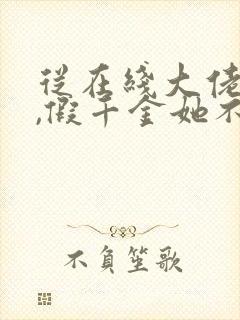 从在綫大佬
,假千金她不
不負笙歌